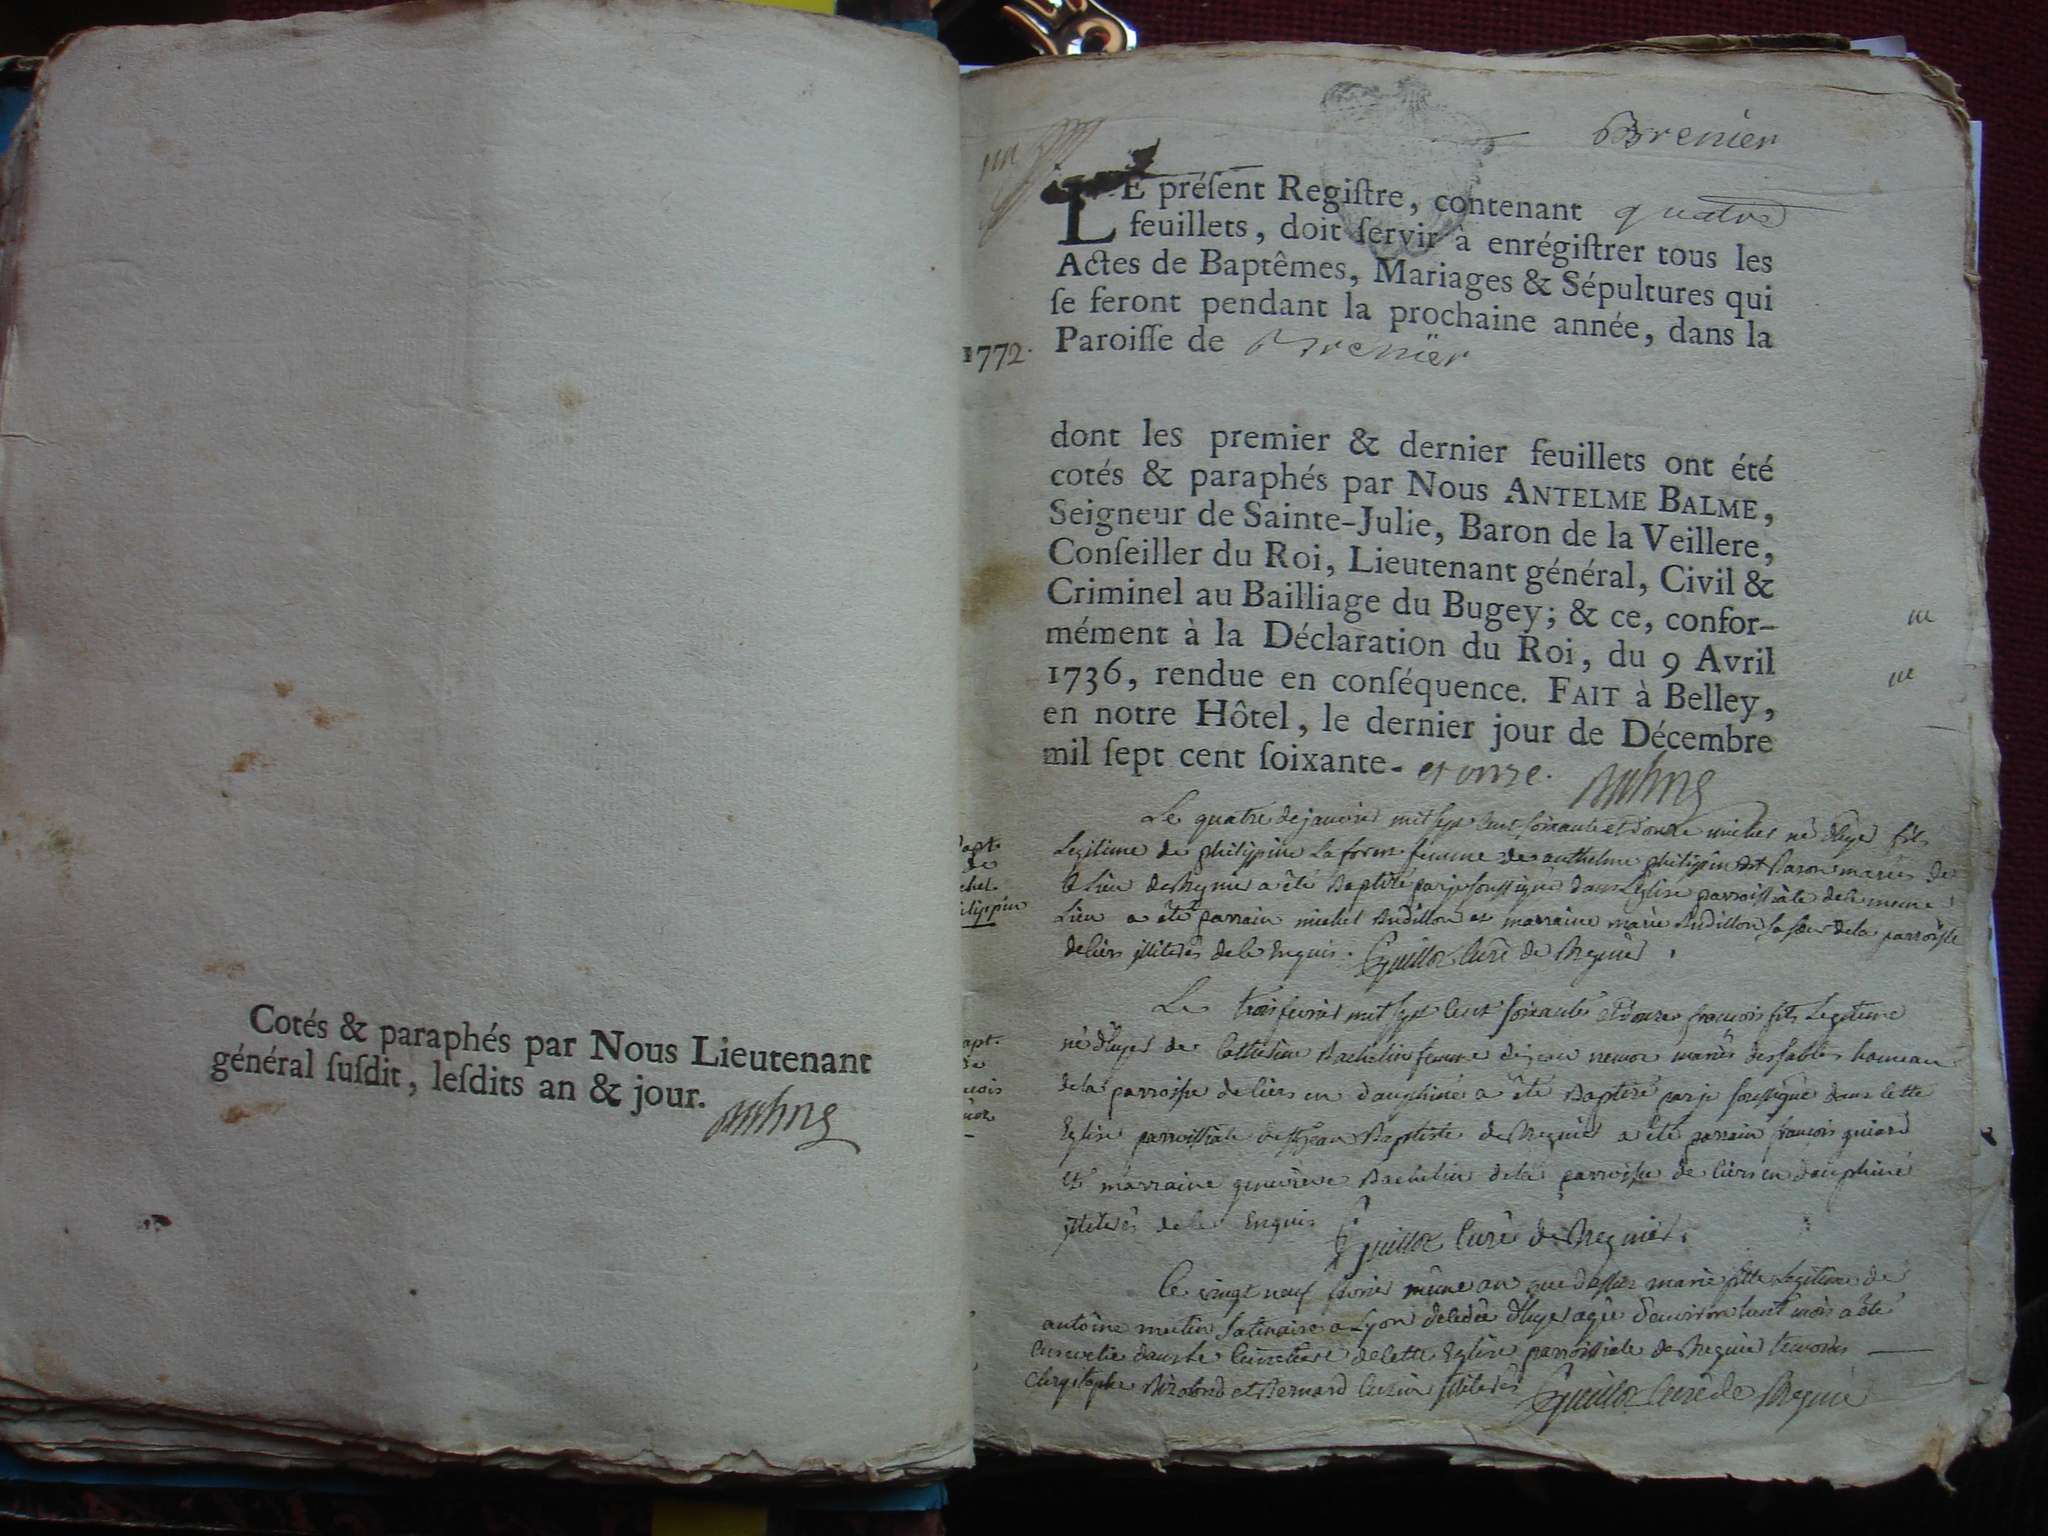 Cotés & paraphés par Nous Lieutenant
général ſuſdit, leſdits an & jour.
Brenier
LE préſent Regiſtre, contenant quatre
feuillets, doit ſervir à enrégiſtrer tous les
Actes de Baptêmes, Mariages & Sépultures qui
ſe feront pendant la prochaine année, dans la
1772. Paroiſſe de Brenier
dont les premier & dernier feuillets ont été
cotés & paraphés par Nous ANTELME BALME,
Seigneur de Sainte-Julie, Baron de la Veillere,
Conſeiller du Roi, Lieutenant général, Civil &
Criminel au Bailliage du Bugey; & ce, confor-
mément à la Déclaration du Roi, du 9 Avril
1736, rendue en conſéquence. FAIT à Belley,
en notre Hôtel, le dernier jour de Décembre
mil ſept cent ſoixante- et onze.
Le quatre de janvier mil sept cent soixante et douze michel né d'hyer fils
Legitime de philippine femme de anthelme philippin dit Baron mariés de
a été Baptisé par je soussigné dans l'Eglise parroissiale de le meme
Lieu a été parrain michel Andillon et marraine marie Andillon sa sœur de la parroisse
de liers illiterés de le enquis. Guillot Curé de Regnier.
Le trois fevrier mil sept cent soixante et douze francois fils Legitime
né d'hyer de Catherine Bachelin femme de jean mariés des sables hameau
de la parroisse de liers en dauphiné a été Baptisé par je soussigné dans cette
Eglise parroissiale de st jean Baptiste de Regnier a été parrain francois guiard
et marraine genevieve Bachelin de la parroisse de liers en dauphiné
illiterés de le Enquis Guillot Curé de Regnier.
Le vingt neuf fevrier meme an que dessus marie fille Legitime de
antoine satinaire a Lyon decedée d'hyer agée d'environ huit mois a été
dans le Cimetiere de cette Eglise parroissiale de Regnier temoins
Christophe et Bernard illiterés Guillot Curé de Regnier